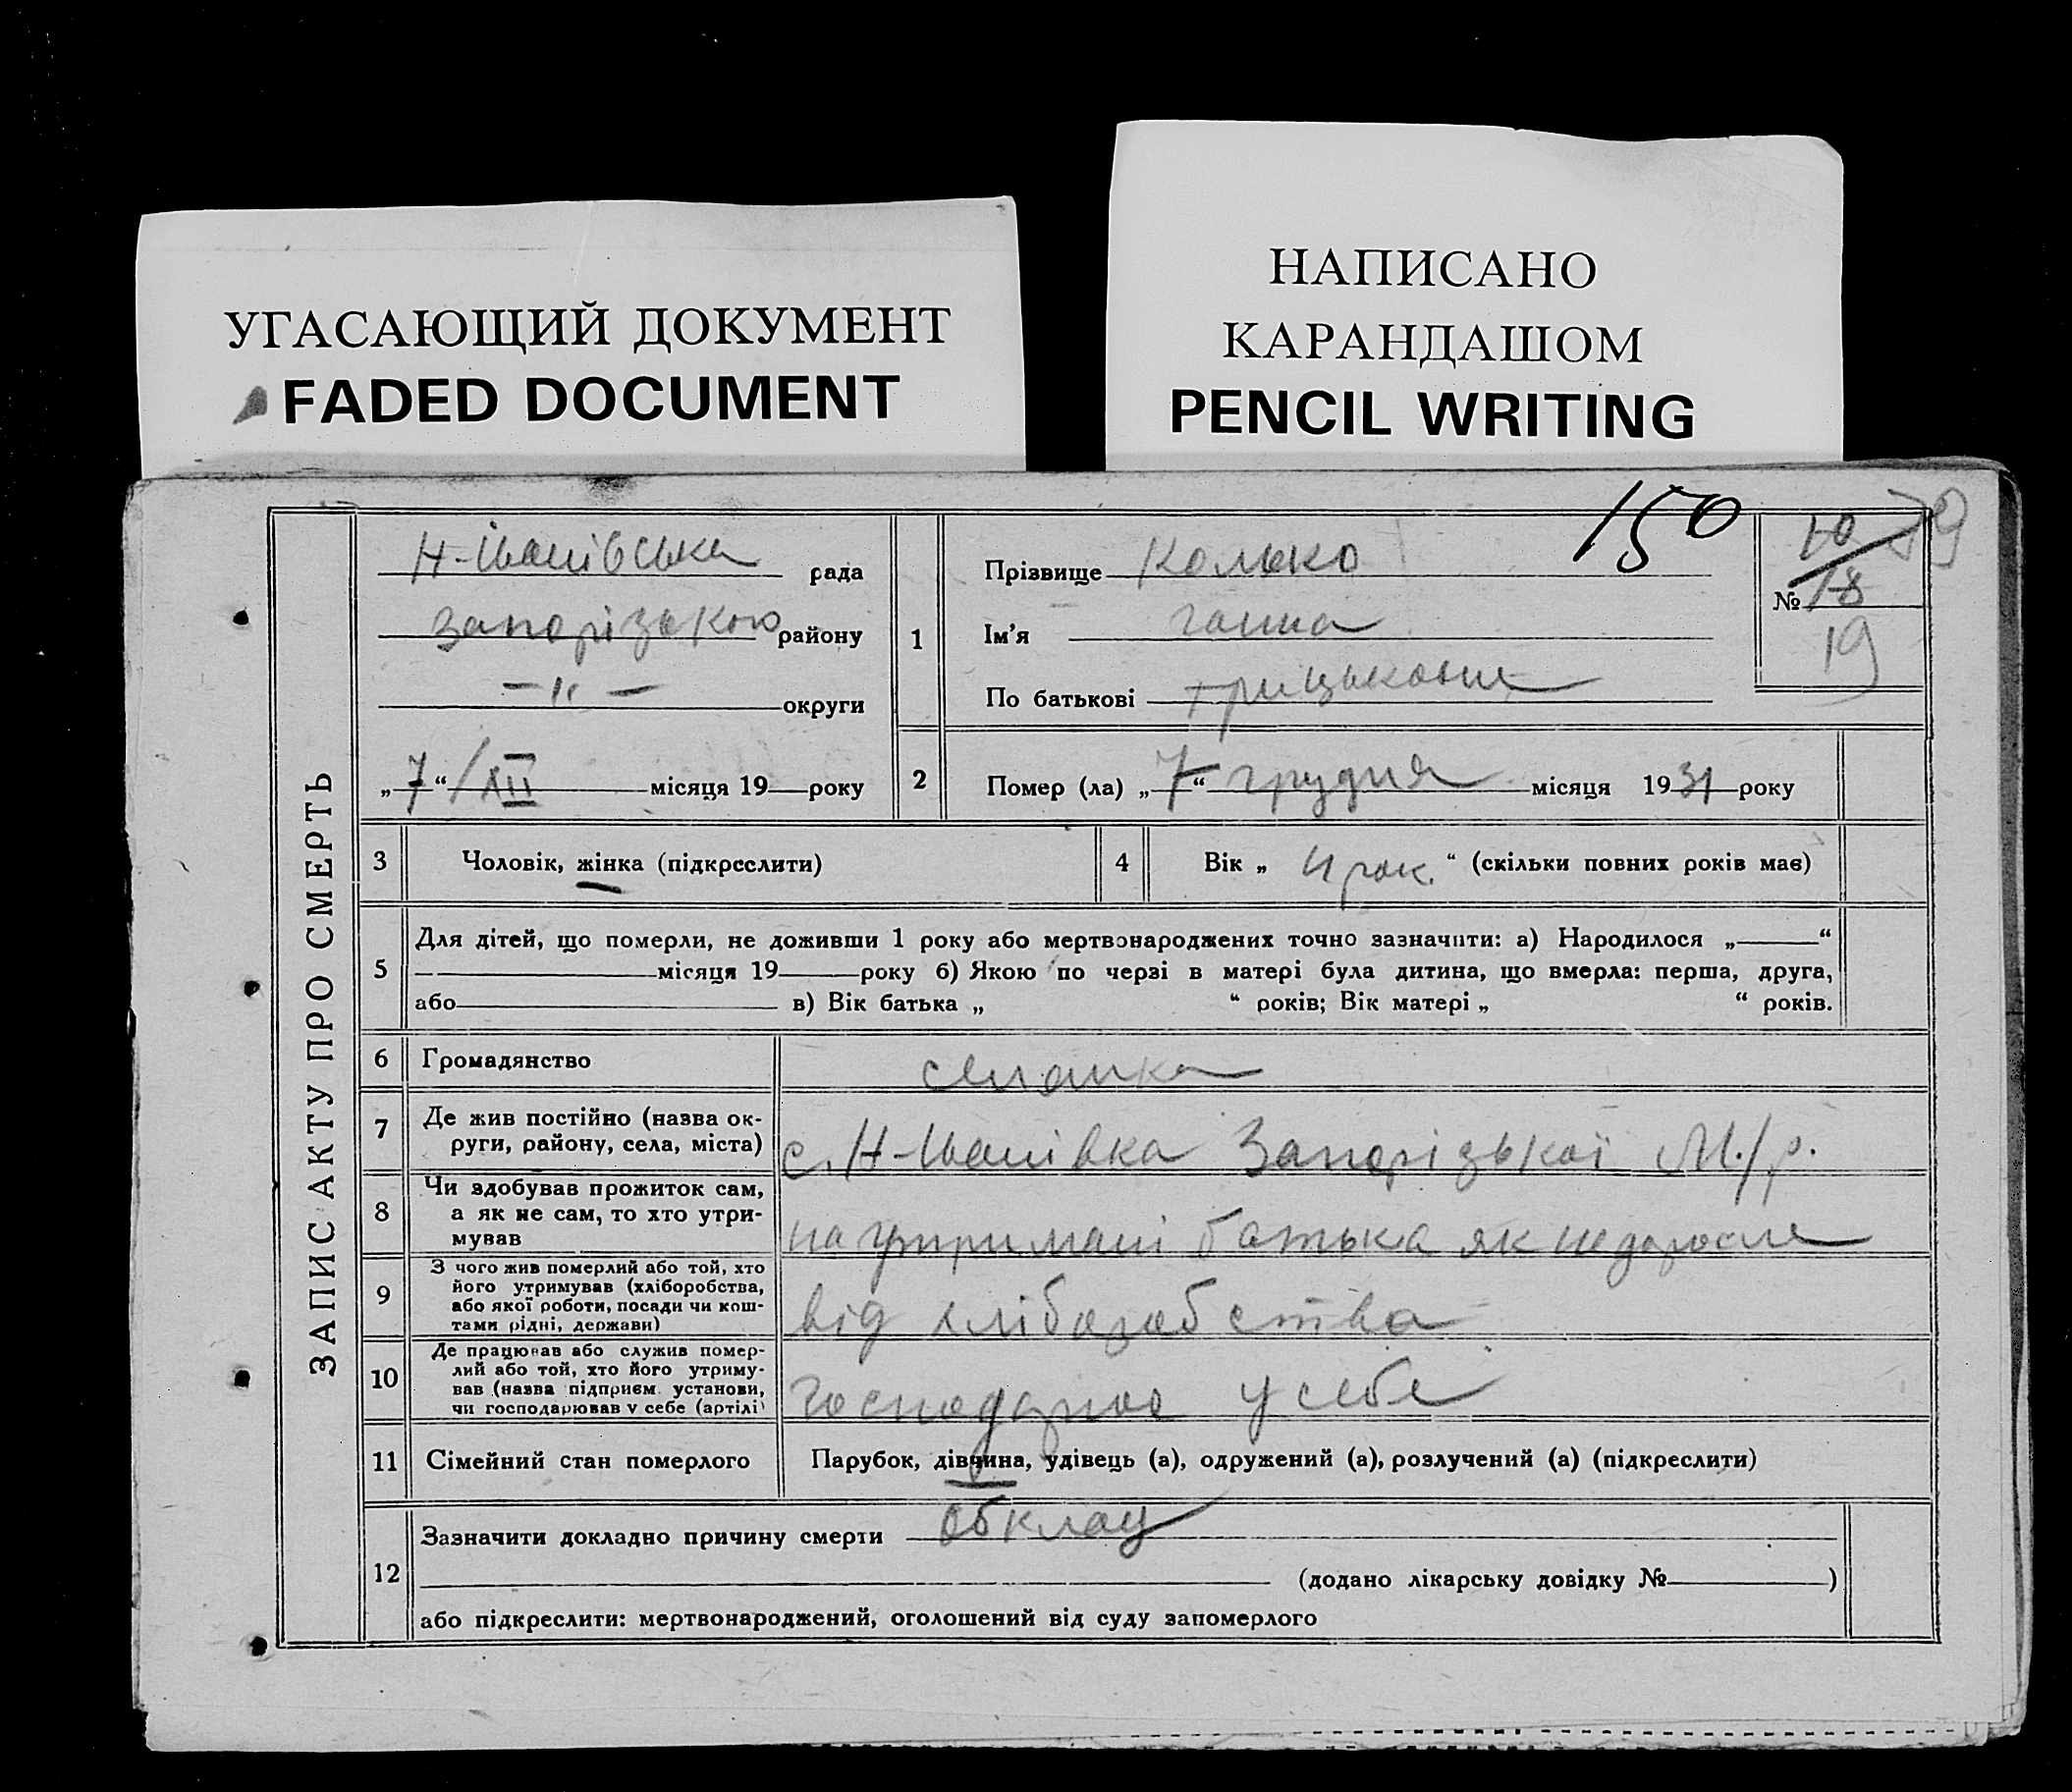 УГАСАЮЩИЙ ДОКУМЕНТ
FADED DOCUMENT
НАПИСАНО
КАРАНДАШОМ
PENCIL WRITING
ЗАПИС АКТУ ПРО СМЕРТЬ
150
Н-Іванівська рада
Запорізького району
—〃— округи
„7“ /XII місяця 19 року
1
Прізвище Колько
Ім'я Ганна
По батькові Грицьковна
№ 18
19
2 Помер (ла) „7“ грудня місяця 1931 року
3 Чоловік, жінка (підкреслити)
4 Вік „ 4 рок. “ (скільки повних років має)
5
Для дітей, що померли, не доживши 1 року або мертвонароджених точно зазначити: а) Народилося „ “
місяця 19 року б) Якою по черзі в матері була дитина, що вмерла: перша, друга,
або в) Вік батька „ “ років; Вік матері „ “ років.
6 Громадянство селянка
7 Де жив постійно (назва ок-
руги, району, села, міста) с. Н-Іванівка Запорізької М./р.
8 Чи здобував прожиток сам,
а як не сам, то хто утри-
мував на утримані батька як недоросла
9 З чого жив померлий або той, хто
його утримував (хліборобства,
або якої роботи, посади чи кош-
тами рідні, держави) від хліборобства
10 Де працював або служив помер-
лий або той, хто його утриму-
вав (назва підприєм. установи,
чи господарював у себе (артілі) господарює у себе
11 Сімейний стан померлого Парубок, дівчина, удівець (а), одружений (а), розлучений (а) (підкреслити)
12
Зазначити докладно причину смерти обклад
(додано лікарську довідку № )
або підкреслити: мертвонароджений, оголошений від суду запомерлого